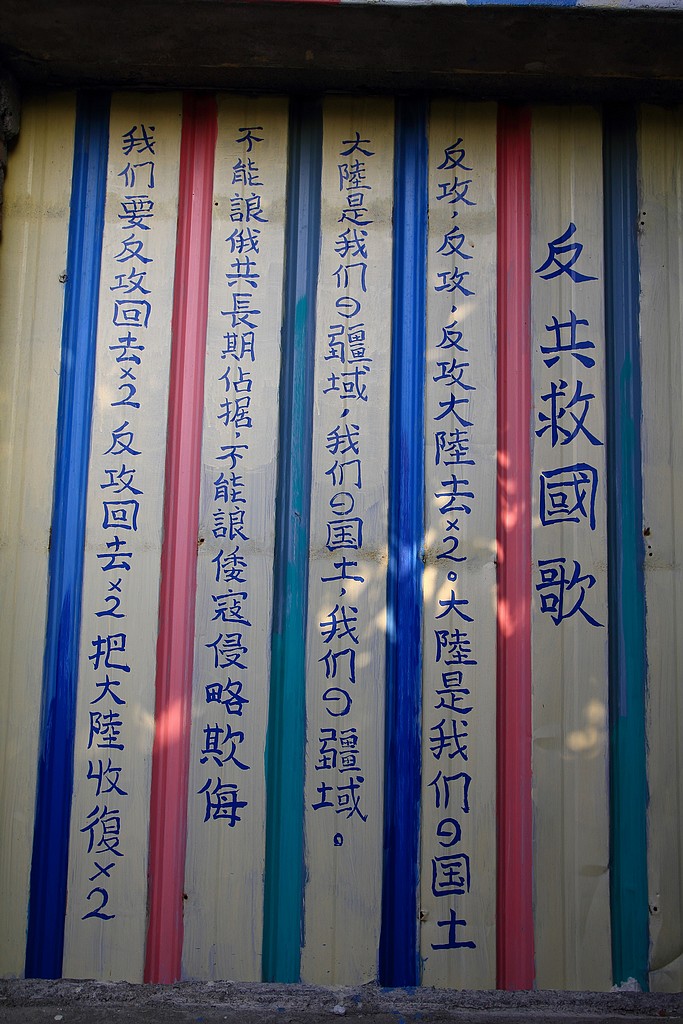 反共救國歌
反攻，反攻，反攻大陸去×2。大陸是我们の国土
大陸是我们の疆域，我们の国土，我们の疆域。
不能讓俄共長期佔据，不能讓倭寇侵略欺侮
我们要反攻回去×2反攻回去×2把大陸收復×2